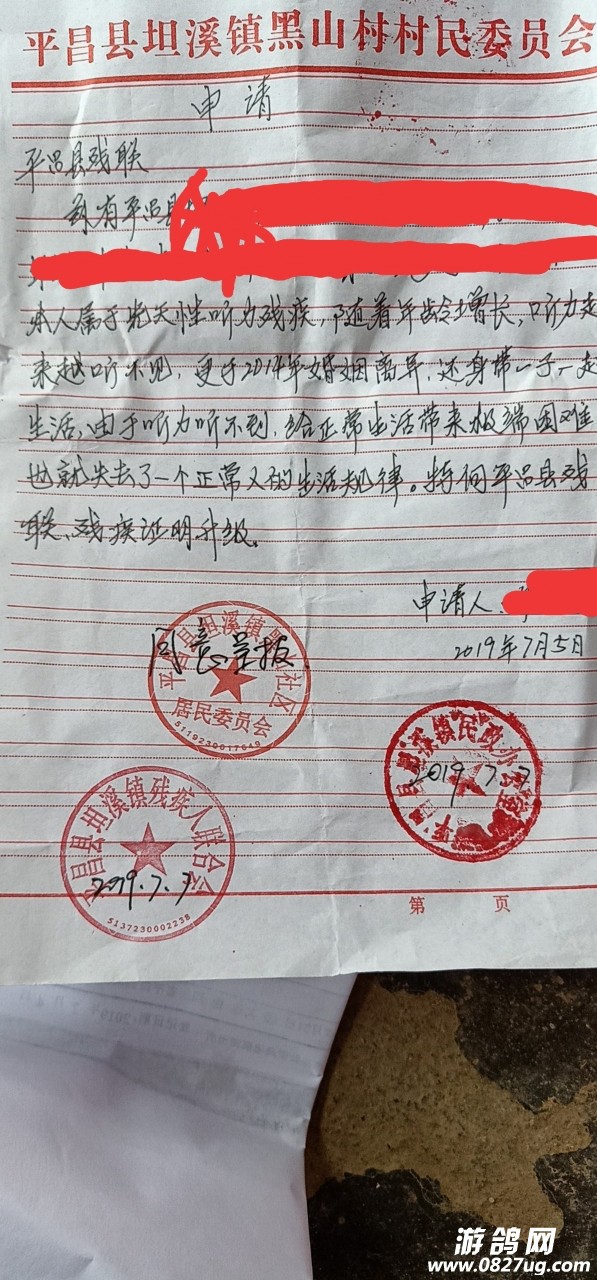 平昌县坦溪镇黑山村村民委员会
申请
平昌县残联
兹有平昌县
本人属于先天性听力残疾，随着年龄增长，听力越
来越听不见，更于2014年婚姻离异，还身带一子一起
生活，由于听力听不到，给正常生活带来极端困难
也就失去了一个正常人的生活规律。特向平昌县残
联，残疾证明升级。
申请人
2019年7月5日
同意呈报
平昌县坦溪镇黑 社区
居民委员会
5119230017649
平昌县坦溪镇民政办公室
2019.7.7
平昌县坦溪镇残疾人联合会
2019.7.7
5137230002238
第 页
游鸽网
www.0827ug.com